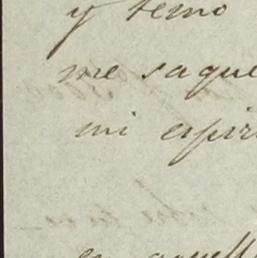 y temo
me saque
mi espiri
es aquell